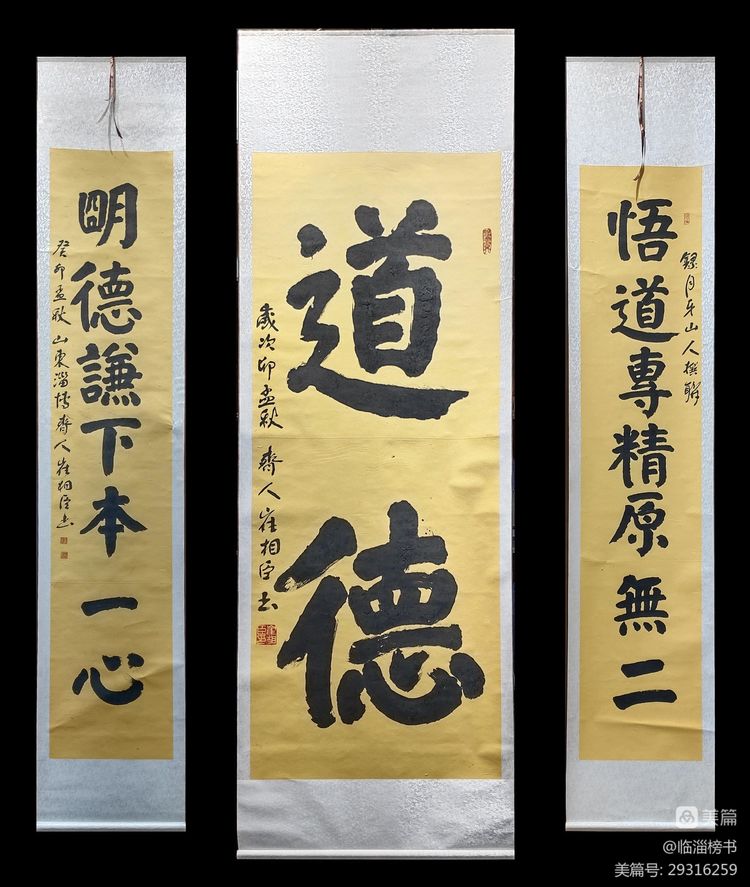 悟道專精原無二
錄月牙山人撰聯
道德
歲次卯孟秋 齊人崔相臣书
朙德謙下本一心
癸卯孟秋山東淄博齊人崔相臣书
美篇
@临淄榜书
美篇号: 29316259